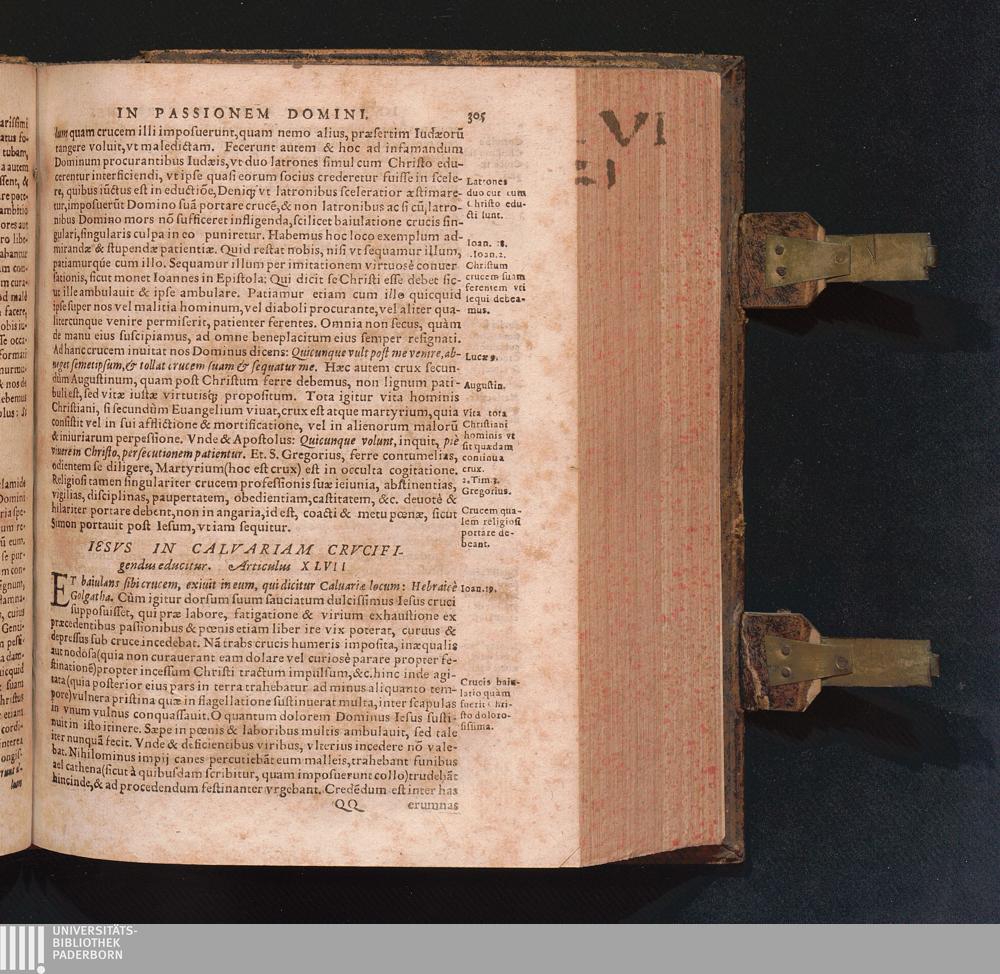 IN PASSIONEM DOMINI. 305
lum quam crucem illi imposuerunt, quam nemo alius, præsertim Iudæorū
tangere voluit, vt maledictam. Fecerunt autem & hoc ad infamandum
Dominum procurantibus Iudæis, vt duo latrones simul cum Christo edu-
cerentur interficiendi, vt ipse quasi eorum socius crederetur fuisse in scele-
re, quibus iūctus est in eductiōe, Deniq; vt latronibus sceleratior æstimare-
tur, imposuerūt Domino suā portare crucē, & non latronibus ac si cū, latro-
nibus Domino mors nō sufficeret infligenda, scilicet baiulatione crucis sin-
gulari, singularis culpa in eo puniretur. Habemus hoc loco exemplum ad-
mirandæ & stupendæ patientiæ. Quid restat nobis, nisi vt sequamur illum,
patiamurque cum illo. Sequamur illum per imitationem virtuosè conuer
sationis, sicut monet Ioannes in Epistola: Qui dicit se Christi esse debet sic-
ut ille ambulauit & ipse ambulare. Patiamur etiam cum illo quicquid
ipse super nos vel malitia hominum, vel diaboli procurante, vel aliter qua-
litercunque venire permiserit, patienter ferentes. Omnia non secus, quàm
de manu eius suscipiamus, ad omne beneplacitum eius semper resignati.
Ad hanc crucem inuitat nos Dominus dicens: Quicunque vult post me venire, ab-
neget semetipsum, & tollat crucem suam & sequatur me. Hæc autem crux secun-
dùm Augustinum, quam post Christum ferre debemus, non lignum pati-
buli est, sed vitæ iustæ virtutisq; propositum. Tota igitur vita hominis
Christiani, si secundùm Euangelium viuat, crux est atque martyrium, quia
consistit vel in sui afflictione & mortificatione, vel in alienorum malorū
& iniuriarum perpessione. Vnde & Apostolus: Quicunque volunt, inquit, piè
viuere in Christo, persecutionem patientur. Et. S. Gregorius, ferre contumelias,
odientem se diligere, Martyrium (hoc est crux) est in occulta cogitatione.
Religiosi tamen singulariter crucem professionis suæ ieiunia, abstinentias,
vigilias, disciplinas, paupertatem, obedientiam, castitatem, &c. deuotè &
hilariter portare debent, non in angaria, id est, coacti & metu pœnæ, sicut
Simon portauit post Iesum, vt iam sequitur.
IESVS IN CALVARIAM CRVCIFI-
gendus educitur. Articulus XLVII
ET baiulans sibi crucem, exiuit in eum, qui dicitur Caluariæ locum: Hebraicè
Golgatha. Cùm igitur dorsum suum sauciatum dulcissimus Iesus cruci
supposuisset, qui præ labore, fatigatione & virium exhaustione ex
præcedentibus passionibus & pœnis etiam liber ire vix poterat, curuus &
depressus sub cruce incedebat. Nā trabs crucis humeris imposita, inæqualis
aut nodosa (quia non curauerant eam dolare vel curiosè parare propter fe-
stinationē) propter incessum Christi tractum impulsum, &c. hinc inde agi-
tata (quia posterior eius pars in terra trahebatur ad minus aliquanto tem-
pore) vulnera pristina quæ in flagellatione sustinuerat multa, inter scapulas
in vnum vulnus conquassauit. O quantum dolorem Dominus Iesus susti-
nuit in isto itinere. Sæpe in pœnis & laboribus multis ambulauit, sed tale
iter nunquā fecit. Vnde & deficientibus viribus, vlterius incedere nō vale-
bat. Nihilominus impij canes percutiebāt eum malleis, trahebant funibus
ael cathena (sicut à quibusdam scribitur, quam imposuerunt collo) trudebāt
hincinde, & ad procedendum festinanter vrgebant. Credēdum est inter has
QQ erumnas
Latrones
duo cur cum
Christo edu-
cti sunt.
Ioan. 18.
1.Ioan.2.
Christum
crucem suam
ferentem vti
sequi debea-
mus.
Lucæ 9.
Augustin.
Vita tota
Christiani
hominis vt
sit quædam
continua
crux.
2.Tim.3.
Gregorius.
Crucem qua-
lem religiosi
portare de-
beant.
Ioan.19.
Crucis baiu-
latio quàm
fuerit Chri-
sto doloro-
sissima.
VI
UNIVERSITÄTS-
BIBLIOTHEK
PADERBORN